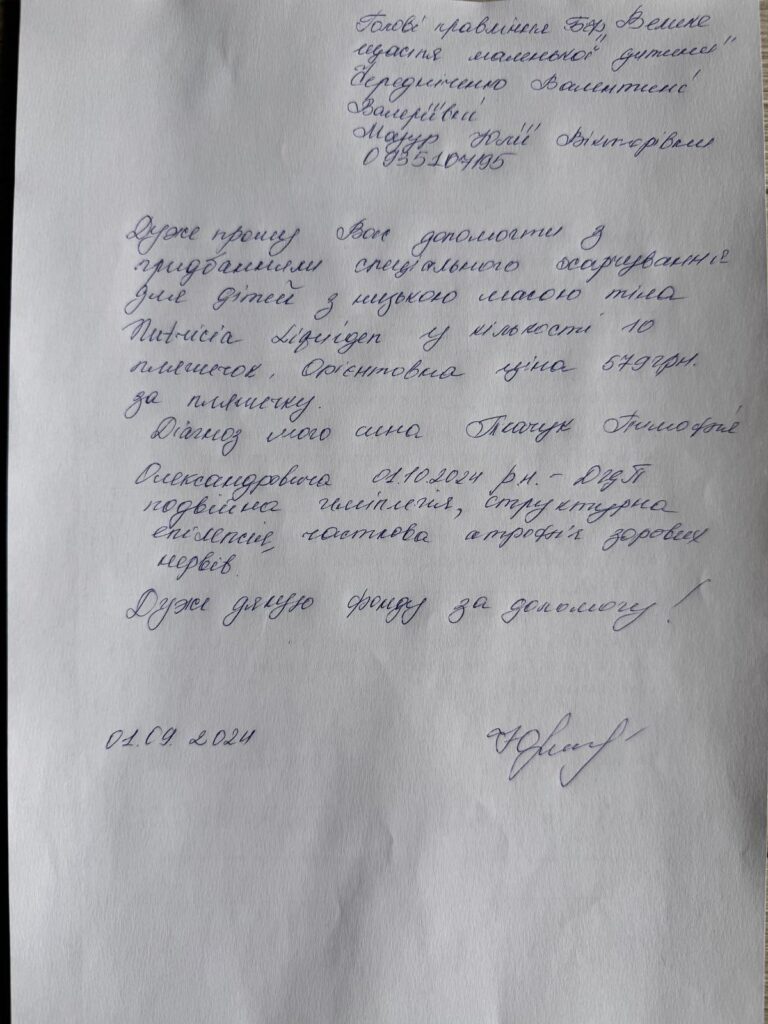 Голові правління БФ "Велике
щастя маленької дитини"
Чередніченко Валентині
Валеріївні
Мазур Юлії Вікторівни
0935107195
Дуже прошу Вас допомогти з
придбаннями спеціального харчування
для дітей з низькою масою тіла
Nutricia Liquigen у кількості 10
пляшечок. Орієнтовна ціна 579грн.
за пляшечку.
Діагноз мого сина Ткачук Тимофія
Олександровича 01.10.2024 р.н. – ДЦП
подвійна геміплегія, структурна
епілепсія, часткова атрофія зорових
нервів.
Дуже дякую фонду за допомогу!
01.09.2024